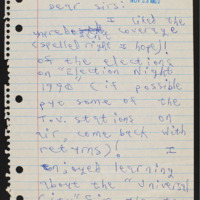 Dear Sirs:
I liked the
coverage
(spelled right I hope)!
of the elections
on "Election Night
1990 (if possible
put some of the
T.V. stations on
air, come back with
returns)! I
enjoyed learning
about the "Universal